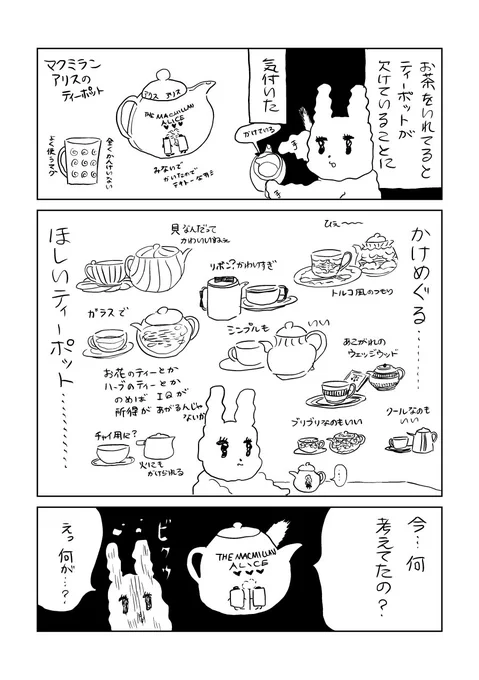 お茶をいれてると
ティーポットが
欠けていることに
気付いた
かけている
マクミラン
アリスの
ティーポット
マクミス アリス
THE MACMILLAN
ALICE
みないで
かいたので
テキトーな力ミ
全くかんけいない
よく使うマグ
かけめぐる………
ほしいティーポット………
ひぇ〜〜
トルコ風のつもり
貝なんだって
かわいいねぇ
リボン?かわいすぎ
ガラスで
シンプルも
いい
あこがれの
ウェッジウッド
お花のティーとか
ハーブのティーとか
のめば IQが
所得が あがるんじゃ
ないか
クールなのも
いい
ブリブリなのもいい
チャイ用に?
火にも
かけられる
…
今…何
考えてたの?
THE MACMILLAN
ALICE
ビクゥ
えっ何が…?